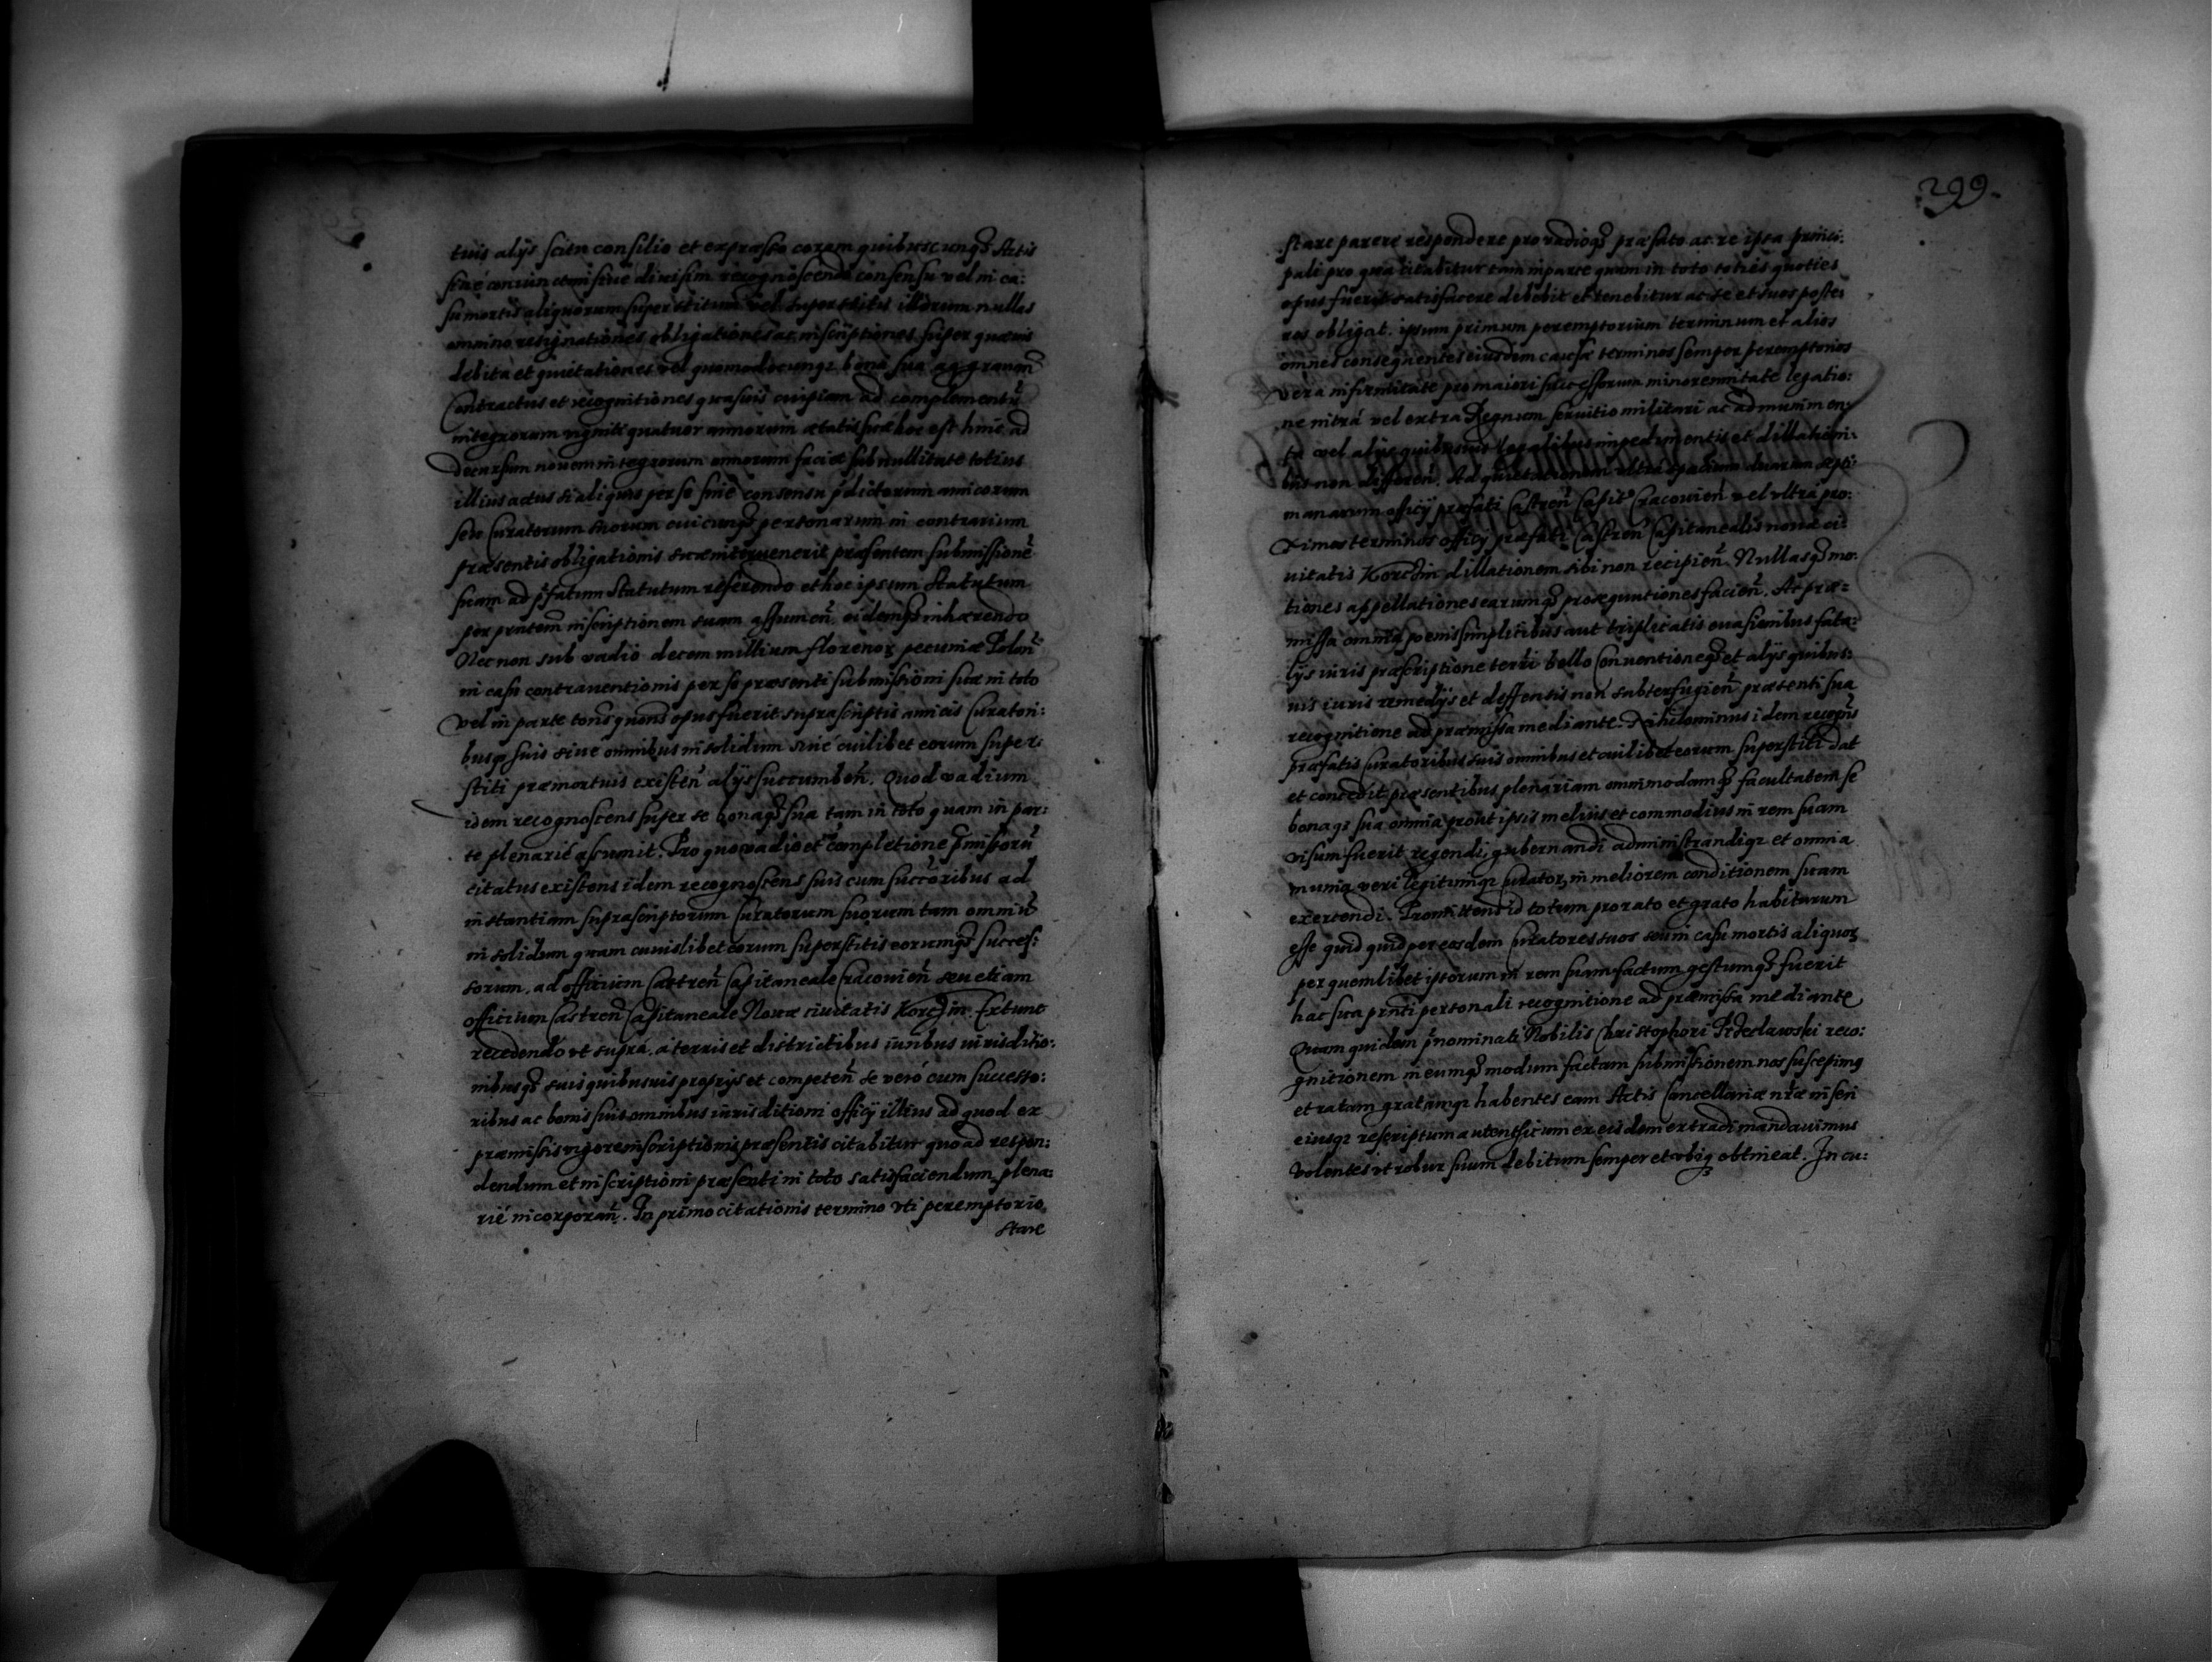 tuis alijs scien consilio et expresso coram quibuscunqꝫ Actis
siue coniunctim siue diuisim recognoscendi consensu vel in ca:
su mortis aliquorum superstitum vel superstitis illorum nullas
omnino resignationes obligationes ac inscriptiones super quæuis
debita et quietationes vel quomodocunqꝫ bona sua aggrauan̄
Contractus et recognitiones quasuis cuipiam ad complementū
integrorum viginti quatuor annorum ætatis suæ hoc est hinc ad
decursum nouem integrorum annorum faciet sub nullitate totius
illius actus si aliquis per se sine consensu p̄dictorum amicorum
seu Curatorum suorum cuicunqꝫ personarum in contrarium
præsentis obligationis suæ interuenerit præsentem submissionē
suam ad p̄fatum Statutum referendo et hoc ipsum Statutum
per pn̄tem inscriptionem suam assumen̄. eidemqꝫ inhærendo
Nec non sub vadio decem millium florenoꝝ pecuniæ Polon̄
in casu contrauentionis per se præsenti submissioni suæ in toto
vel in parte toties quoties opus fuerit suprascriptis amicis Curatori:
busqꝫ suis siue omnibus in solidum siue cuilibet eorum super:
stiti præmortuis existen̄ alijs succumben̄. Quod vadium
idem recognoscens super se bonaqꝫ sua tam in toto quam in par:
te plenarie assumit. Pro quo vadio et completione p̄missorū
citatus existens idem recognoscens suis cum succ̄oribus ad
instantiam suprascriptorum Curatorum suorum tam omniū
in solidum quam cuiuslibet eorum superstitis eorumqꝫ succes:
sorum. ad officium Castren̄ Capitaneale Cracouien̄ seu etiam
officium Castren̄ Capitaneale Nouæ ciuitatis Korczin. Extunc
recedendo vt supra. a terris et districtibus iuribus iurisditio:
nibusqꝫ suis quibusuis proprijs et competen̄ se vero cum successo:
ribus ac bonis suis omnibus iurisditioni officij illius ad quod ex
præmissis vigore inscriptionis præsentis citabitur quoad respon:
dendum et inscriptioni præsenti in toto satisfaciendum plena:
rie incorporan̄. In primo citationis termino vti peremptorio
stare
299.
stare parere respondere pro vadioqꝫ præfato ac re ipsa princi:
pali pro qua citabitur tam in parte quam in toto toties quoties
opus fuerit satisfacere debebit et tenebitur ac se et suos poste:
ros obligat. ipsum primum peremptorium terminum et alios
omnes consequentes eiusdem causæ terminos semper peremptorios
vera infirmitate pro maiori successorum minorennitate legatio:
ne intra vel extra Regnum seruitio militari ac ad munimen:
ta vel alijs quibusuis legalibus impedimentis et dillationi:
bus non differen̄. Ad quietationem vltra spacium duarum septi:
manarum officij præfati Castren̄ Capit̄ Cracouien̄ vel vltra pro:
ximos terminos officij præfati Castren̄ Capitanealis nouæ ci:
uitatis Korczin dillationem sibi non recipien̄. Nullasqꝫ mo:
tiones appellationes earumqꝫ prosequutiones facien̄. Ac præ:
missa omnia poenis simplicibus aut triplicatis euasionibus fata:
lijs iuris præscriptione terr̄i bello Conuentioneqꝫ et alijs quibus:
uis iuris remedijs et deffensis non subterfugien̄ præsenti sua
recognitione ad præmissa mediante. Nihilominus idem recogn̄s
præfatis Curatoribus suis omnibus et cuilibet eorum superstiti dat
et concedit præsentibus plenariam omnimodamqꝫ facultatem se
bonaqꝫ sua omnia prout ipsis melius et commodius in rem suam
visum fuerit regendi, gubernandi administrandiqꝫ et omnia
munia veri legitimiqꝫ curatoꝝ in meliorem conditionem suam
exercendi. Promittens id totum pro rato et grato habiturum
esse quidquid per eosdem Curatores suos seu in casu mortis aliquoꝝ
per quemlibet istorum in rem suam factum gestumqꝫ fuerit
hac sua pn̄ti personali recognitione ad præmissa mediante
Quam quidem p̄nominati Nobilis Christophori Przeclawski reco:
gnitionem in eumqꝫ modum factam submissionem nos suscepimꝰ
et ratam gratamqꝫ habentes eam Actis Cancellariæ nr̄æ inseri
eiusqꝫ rescriptum autenthicum ex eisdem extradi mandauimus
volentes vt robur suum debitum semper et vbiqꝫ obtineat. In cu: